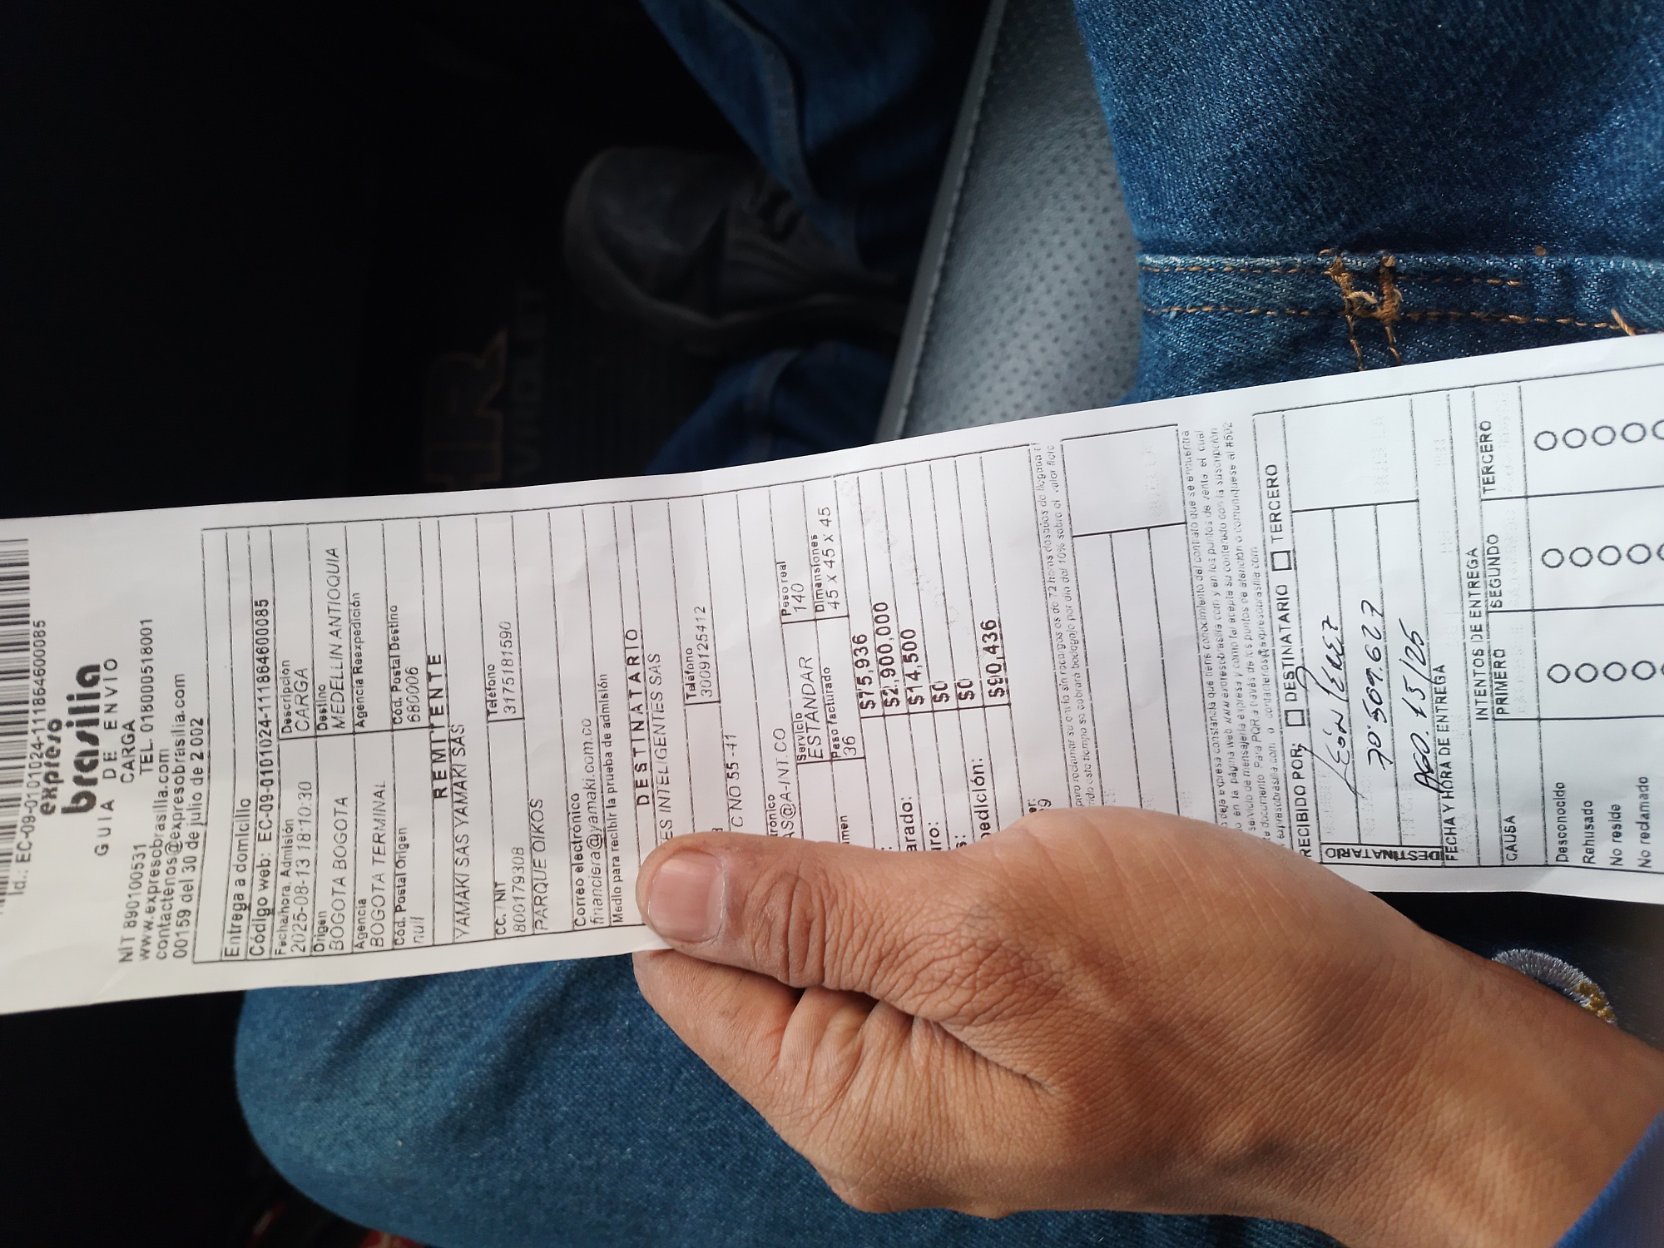 Id.: EC-09-0101024-1118646000​85
expreso
brasilia
GUIA DE ENVIO
CARGA
NIT 890100531 TEL. 018000518001
www.expresobrasilia.com
contactenos@expresobrasilia.com
00159 del 30 de julio de 2002
Entrega a domicilio
Código web: EC-09-0101024-111864600085
Fecha/hora. Admisión Descripción
2025-08-13 18:10:30 CARGA
Origen Destino
BOGOTA BOGOTA MEDELLIN ANTIOQUIA
Agencia Agencia Reexpedición
BOGOTA TERMINAL
Cód. Postal Origen Cód. Postal Destino
null 680006
REMITENTE
YAMAKI SAS YAMAKI SAS
CC. / NIT Teléfono
800179308 3175181590
PARQUE OIKOS
Correo electrónico
financiera@yamaki.com.co
Medio para recibir la prueba de admisión
DESTINATARIO
ES INTELIGENTES SAS
Teléfono
3009125412
C NO 55 -41
trónico
AS@A-INT.CO
Servicio Peso real
ESTANDAR 140
umen Peso facturado Dimensiones
36 45 X 45 X 45
$75,936
arado: $2,900,000
uro: $14,500
$0
$0
pedición: $90,436
RECIBIDO POR: DESTINATARIO TERCERO
León Velez
70.509.627
Ago. 15/25
DESTINATARIO
FECHA Y HORA DE ENTREGA
INTENTOS DE ENTREGA
CAUSA PRIMERO SEGUNDO TERCERO
Desconocido
Rehusado
No reside
No reclamado